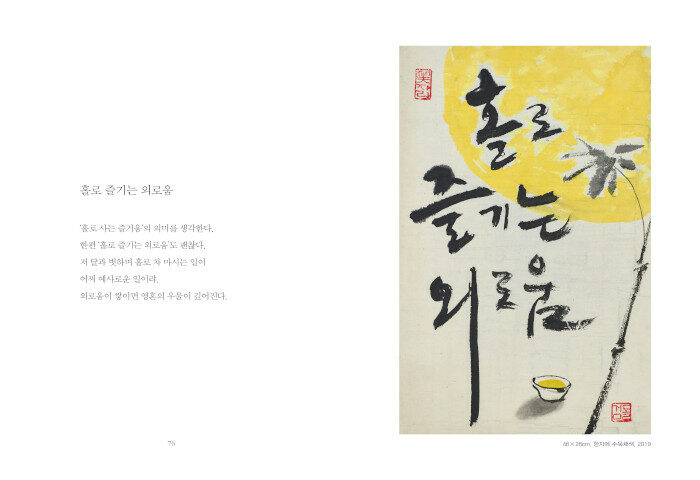 홀로 즐기는 외로움
'홀로 사는 즐거움'의 의미를 생각한다.
한편 '홀로 즐기는 외로움'도 괜찮다.
저 달과 벗하며 홀로 차 마시는 일이
어찌 예사로운 일이랴.
외로움이 쌓이면 영혼의 우물이 깊어진다.
75
홀로
즐기는
외로움
46×26cm, 한지에 수묵채색, 2019